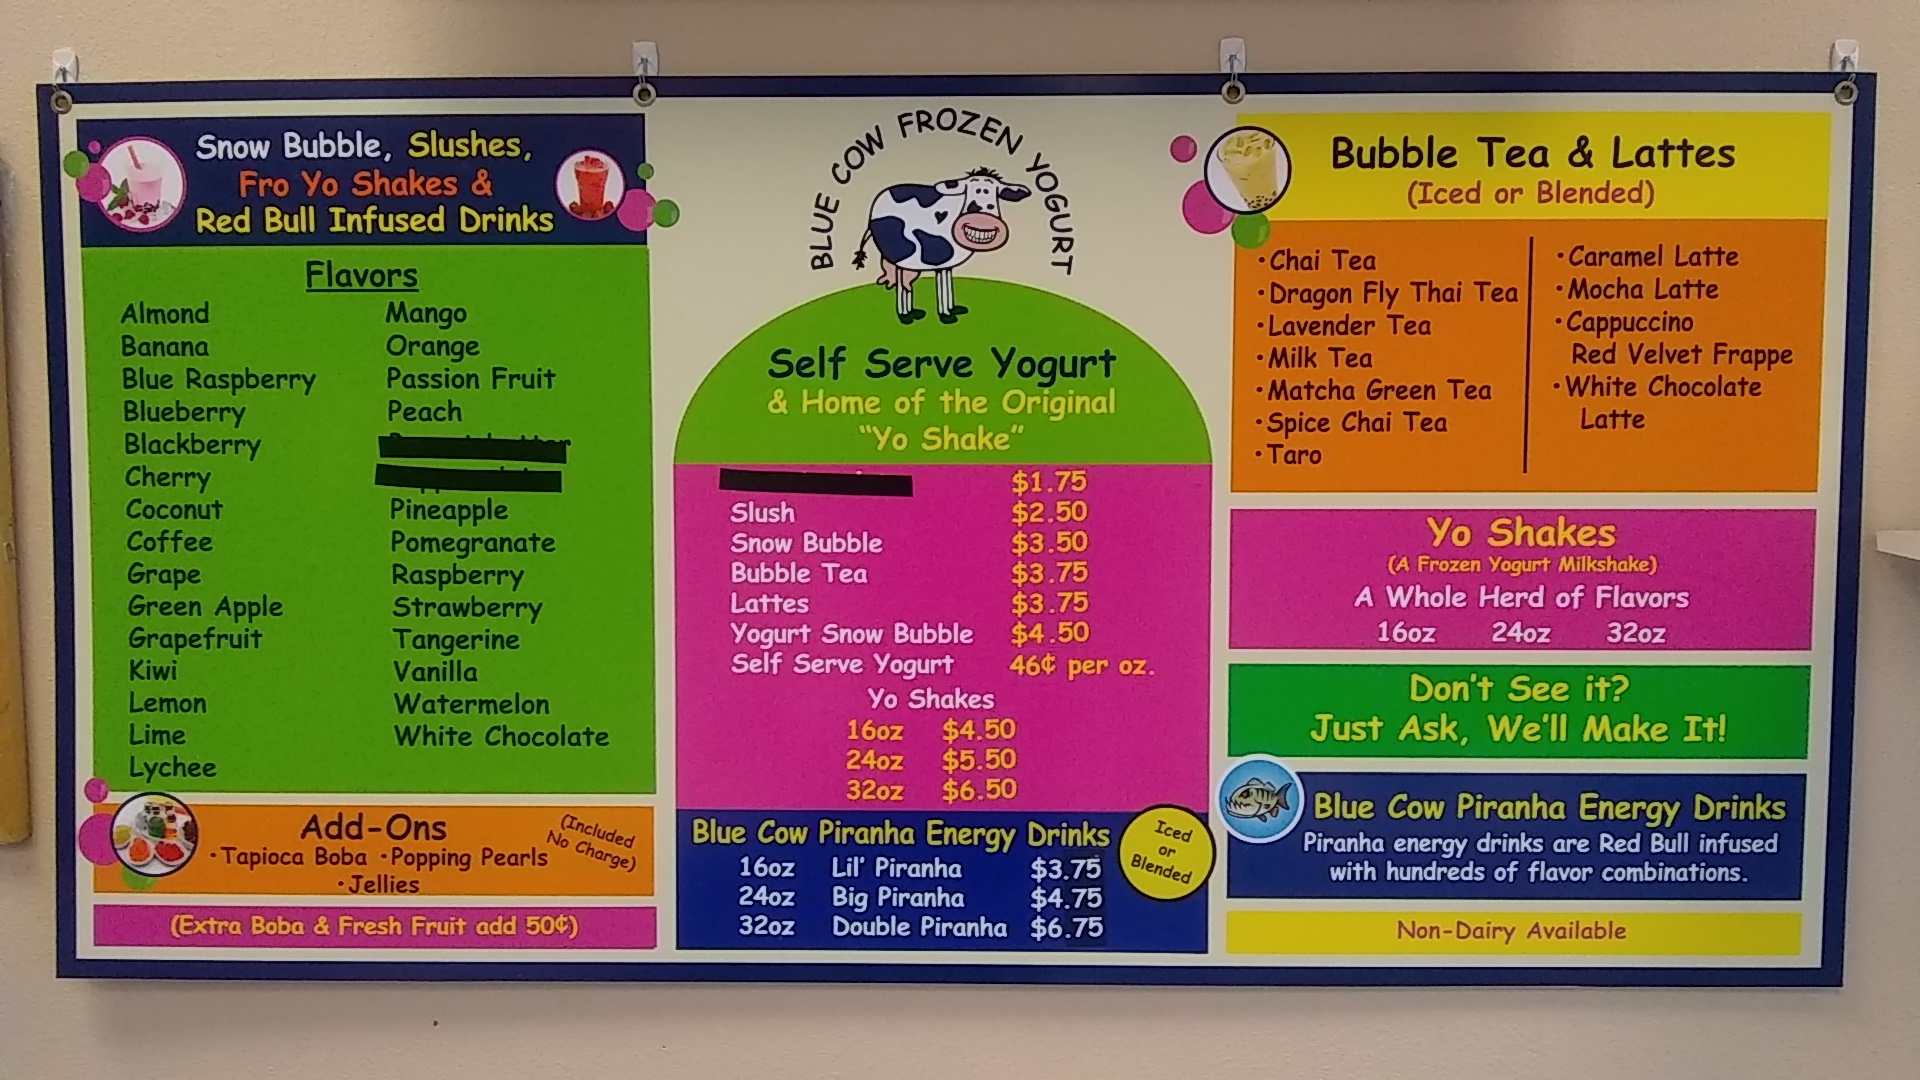 Snow Bubble, Slushes,
Fro Yo Shakes &
Red Bull Infused Drinks
Flavors
Almond
Banana
Blue Raspberry
Blueberry
Blackberry
Cherry
Coconut
Coffee
Grape
Green Apple
Grapefruit
Kiwi
Lemon
Lime
Lychee
Mango
Orange
Passion Fruit
Peach
Pineapple
Pomegranate
Raspberry
Strawberry
Tangerine
Vanilla
Watermelon
White Chocolate
Add-Ons
(Included
No Charge)
·Tapioca Boba ·Popping Pearls
·Jellies
(Extra Boba & Fresh Fruit add 50¢)
BLUE COW FROZEN YOGURT
Self Serve Yogurt
& Home of the Original
"Yo Shake"
$1.75
Slush $2.50
Snow Bubble $3.50
Bubble Tea $3.75
Lattes $3.75
Yogurt Snow Bubble $4.50
Self Serve Yogurt 46¢ per oz.
Yo Shakes
16oz $4.50
24oz $5.50
32oz $6.50
Blue Cow Piranha Energy Drinks
16oz Lil' Piranha $3.75
24oz Big Piranha $4.75
32oz Double Piranha $6.75
Iced
or
Blended
Bubble Tea & Lattes
(Iced or Blended)
·Chai Tea
·Dragon Fly Thai Tea
·Lavender Tea
·Milk Tea
·Matcha Green Tea
·Spice Chai Tea
·Taro
·Caramel Latte
·Mocha Latte
·Cappuccino
Red Velvet Frappe
·White Chocolate
Latte
Yo Shakes
(A Frozen Yogurt Milkshake)
A Whole Herd of Flavors
16oz 24oz 32oz
Don't See it?
Just Ask, We'll Make It!
Blue Cow Piranha Energy Drinks
Piranha energy drinks are Red Bull infused
with hundreds of flavor combinations.
Non-Dairy Available